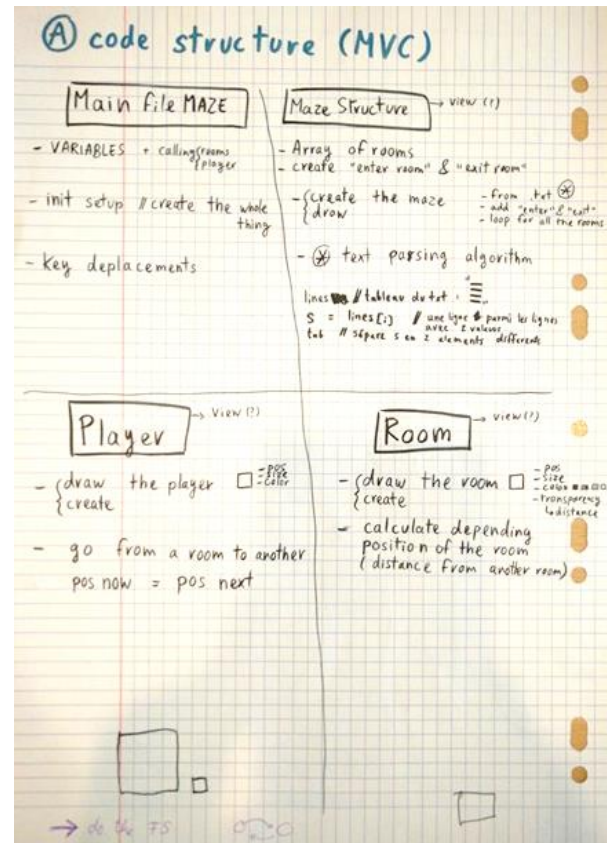 A code structure (MVC)
Main file MAZE
- VARIABLES + calling {rooms
{player
- init setup // create the whole
thing
- Key deplacements
Maze Structure → view (?)
- Array of rooms
- create "enter room" & "exit room"
- { create the maze
{ draw
- from .txt *
- add "enter" & "exit"
- loop for all the rooms
- * text parsing algorithm
lines // tableau du txt :
S = lines[i] // une ligne parmi les lignes
avec 2 valeurs
tab // sépare s en 2 elements différents
Player → View (?)
- { draw the player
{ create
- pos
- size
- color
- go from a room to another
pos now = pos next
Room → view (?)
- { draw the room
{ create
- pos
- size
- color
- transparency
↳ distance
- calculate depending
position of the room
(distance from another room)
→ do the FS